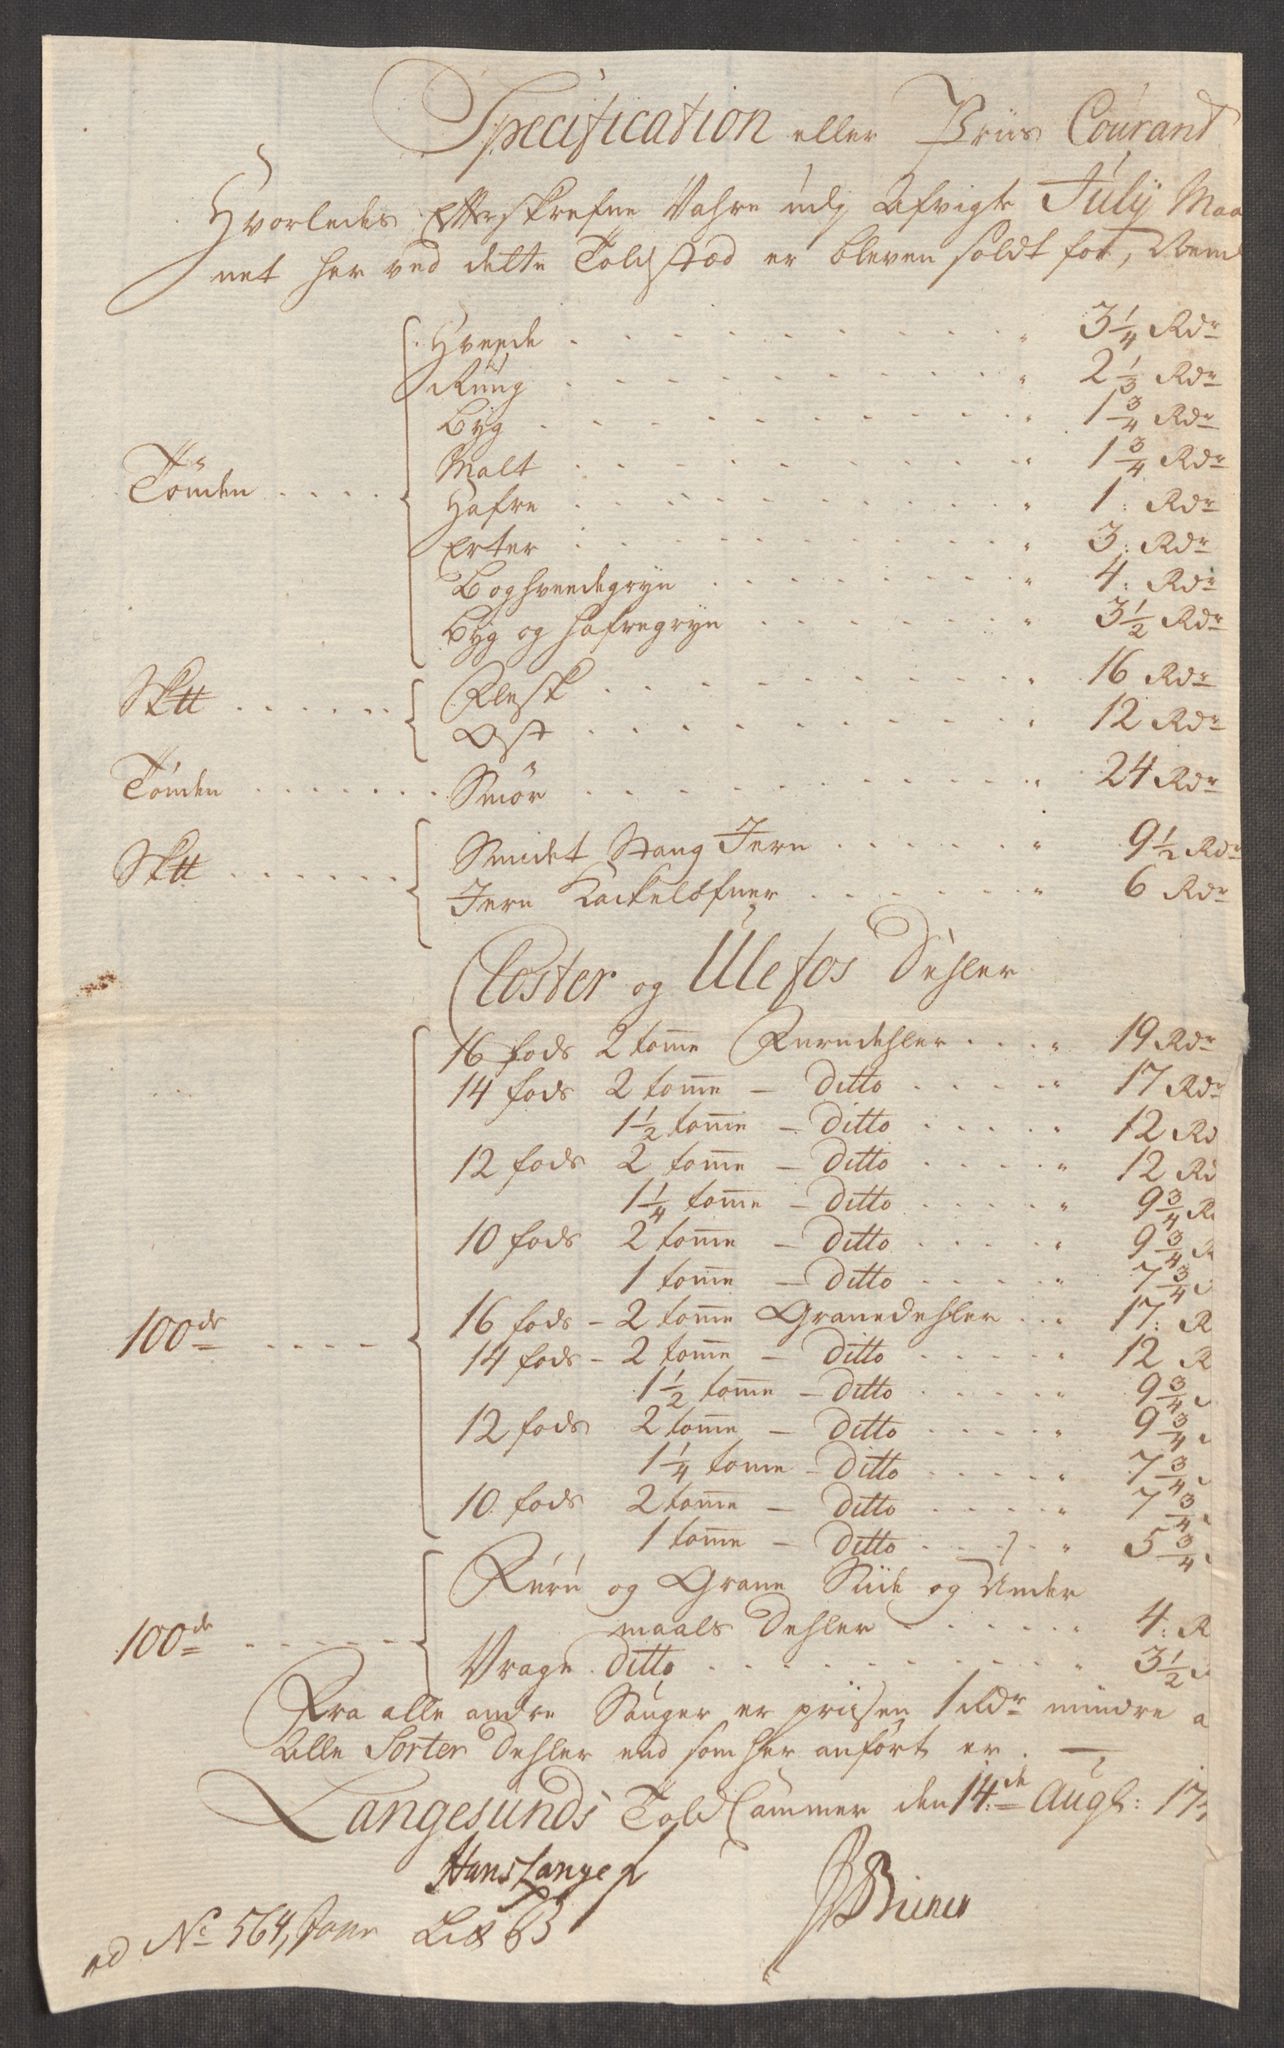 Specification eller Priis Courant
Hvorledes Efterskrefne Vahre udj Afvigte Julij Maa
net her ved dette Toldstæd er bleven soldt for, Neml
Hveede 3 1/4 Rdr
Rüüg 2 1/3 Rdr
Byg 1 3/4 Rdr
Malt 1 3/4 Rdr
Tönden
Hafre 1: Rdr
Erter 3: Rdr
Boghveedegryn 4: Rdr
Byg og hafregryn 3 1/2 Rdr
Sk℔ Flesk 16 Rdr
Ost 12 Rdr
Tönden Smör 24 Rdr
Sk℔ Smidet Stang Jern 9 1/2 Rdr
Jern Kackelofner 6 Rdr
Closter og Ulefos Dehler
16 fods 2 tomme Furudehler 19 Rdr
14 fods 2 tomme - Ditto 17 Rdr
1 1/2 tomme - Ditto 12 Rd
12 fods 2 tomme - Ditto 12 Rd
1 1/4 tomme - Ditto 9 3/4 R
10 fods 2 tomme - Ditto 9 3/4 R
1 tomme - Ditto 7 3/4
100de 16 fods - 2 tomme Granedehler 17: R
14 fods - 2 tomme - Ditto 12 R
1 1/2 tomme - Ditto 9 3/4
12 fods 2 tomme - Ditto 9 3/4
1 1/4 tomme - Ditto 7 3/4
10 fods 2 tomme - Ditto 7 3/4
1 tomme - Ditto 5 3/4
Furu og Grane Siide og Under
100de maals Dehler 4: R
Vrage ditto 3 1/2
Fra alle andre Sauger er priisen 1 Rdr mindre a
Alle Sorter Dehler end som her anfört er.
Langesunds Told Cammer den 14de Aug: 17
Hans Lange
ad No 564, Lit B